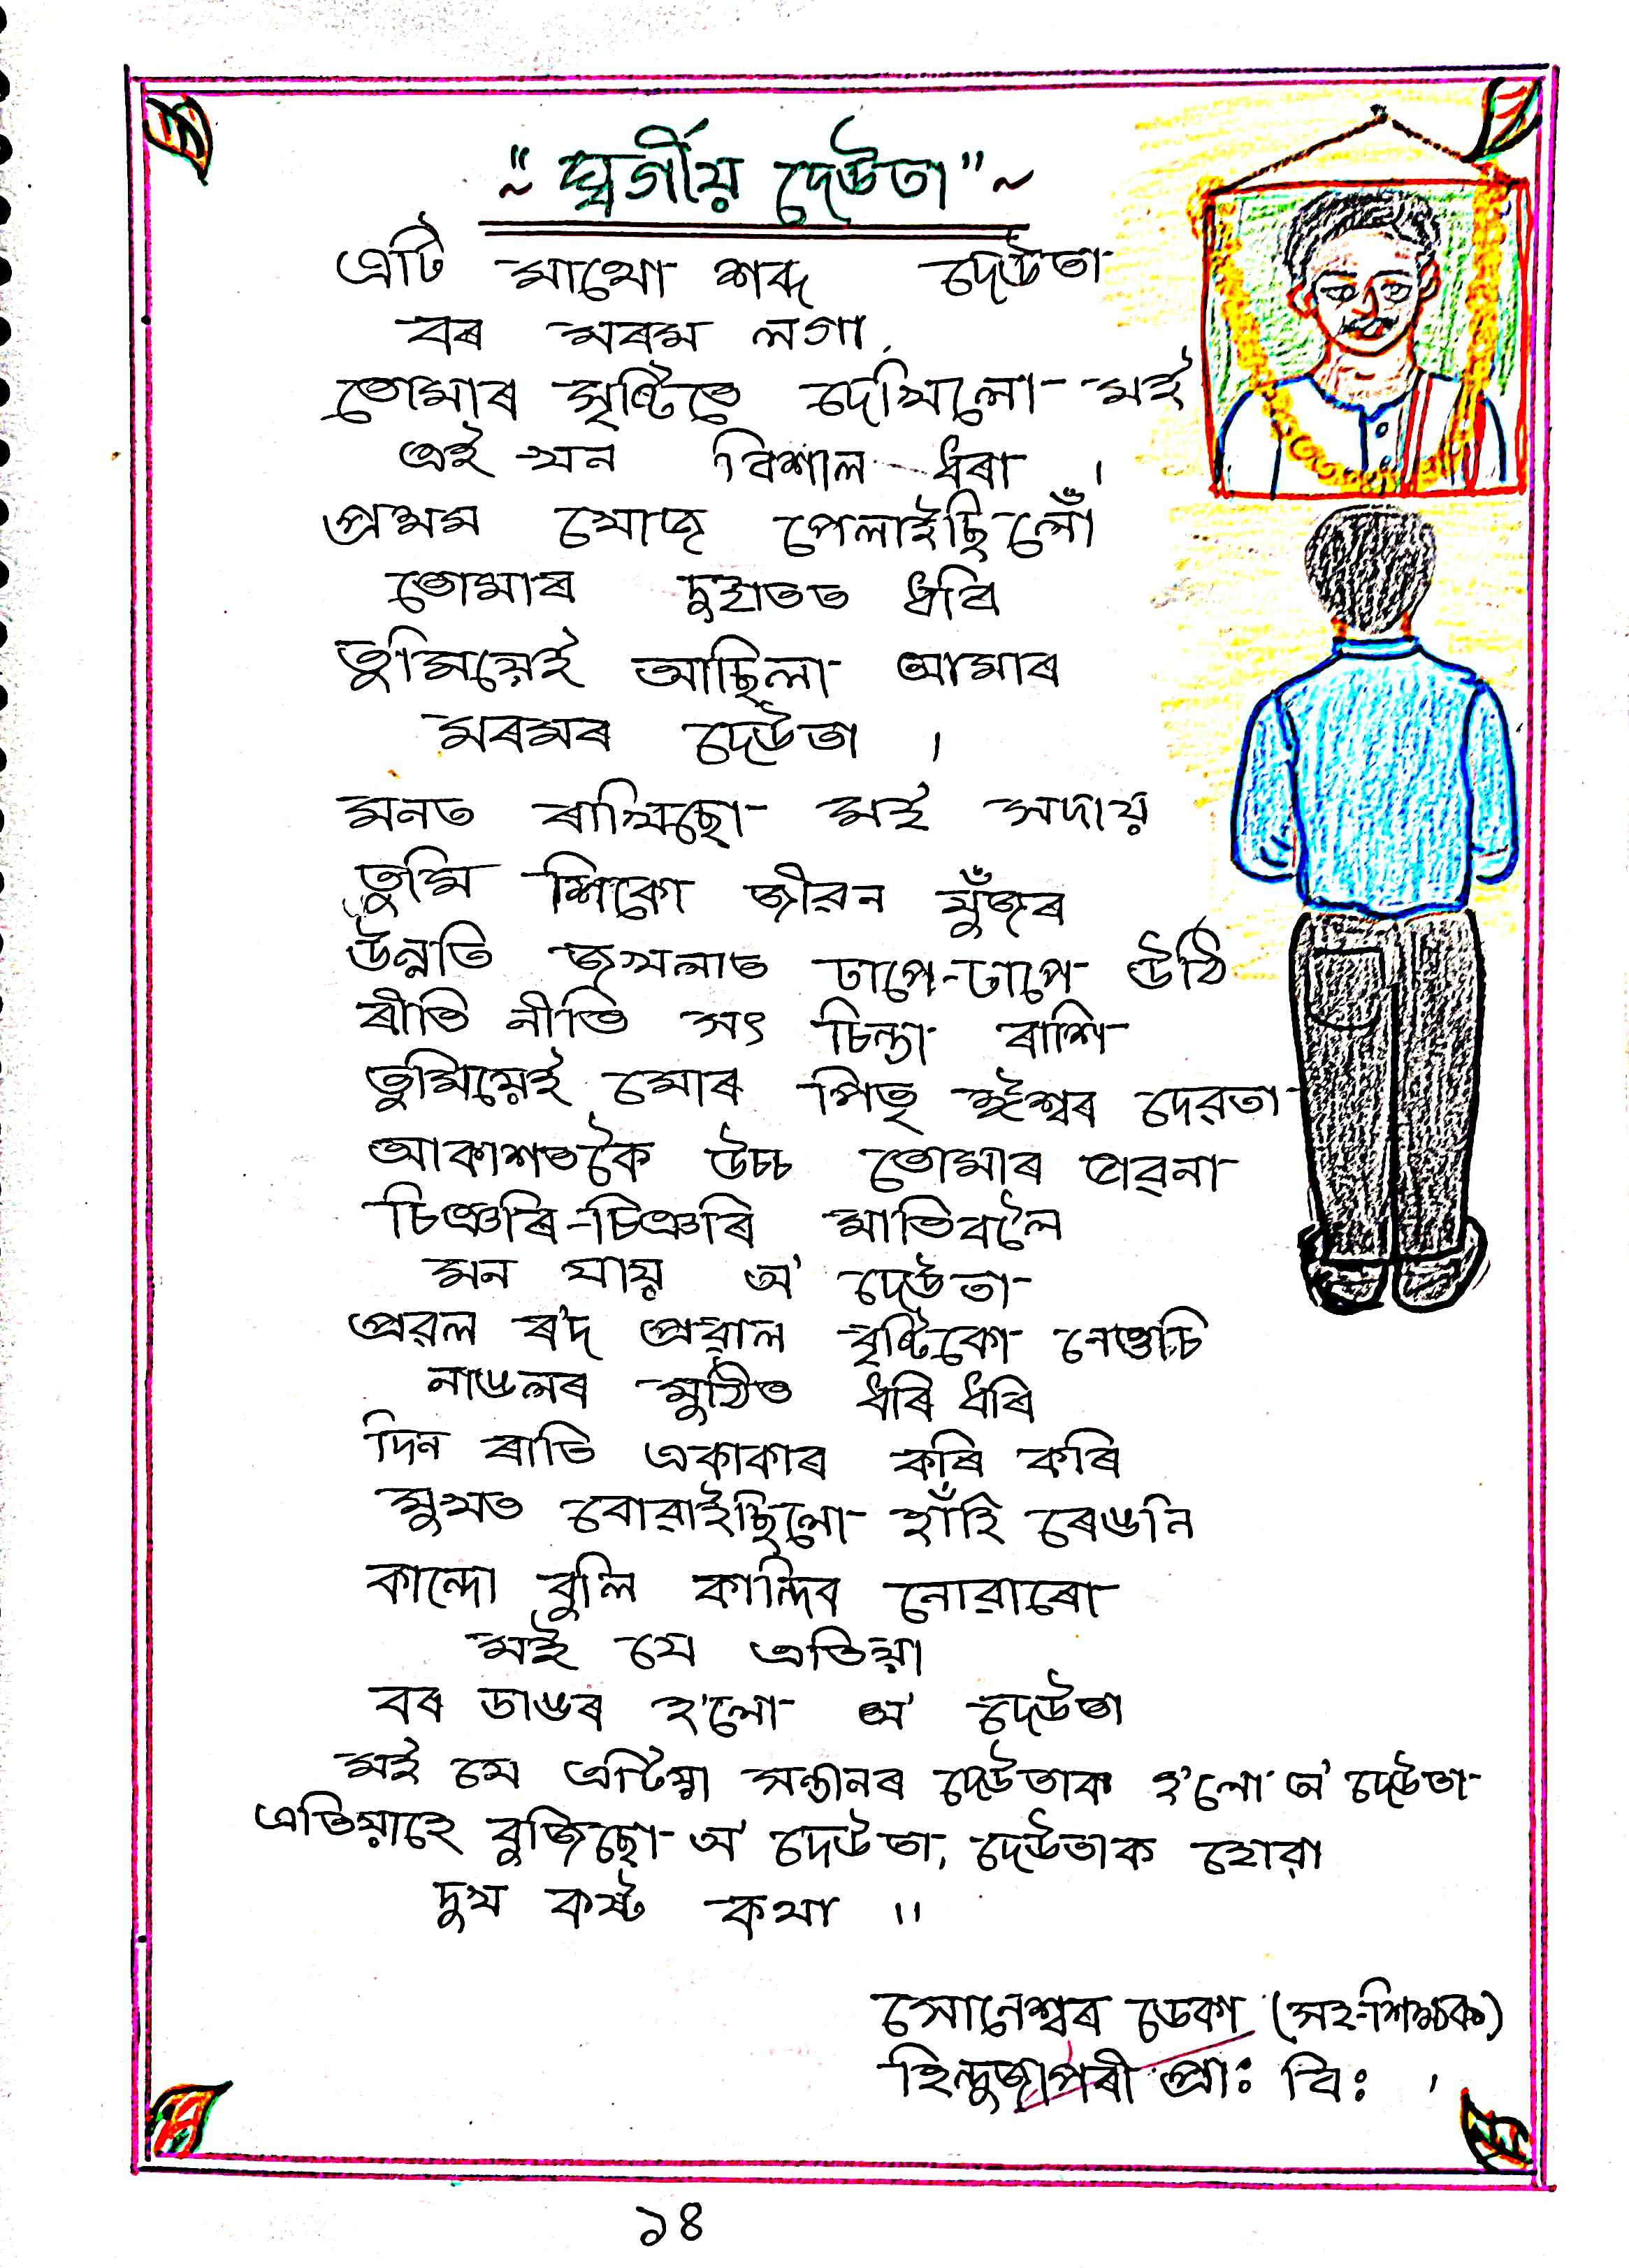 ~"স্বৰ্গীয় দেউতা"~
এটি মাথো শব্দ দেউতা
বৰ মৰম লগা,
তোমাৰ সৃষ্টিতে দেখিলো মই
এই খন বিশাল ধৰা ।
প্ৰথম খোজ পেলাইছিলোঁ
তোমাৰ দুহাতত ধৰি
তুমিয়েই আছিলা আমাৰ
মৰমৰ দেউতা ।
মনত ৰাখিছো মই সদায়
তুমি শিকো জীৱন যুঁজৰ
উন্নতি জখলাত ঢাপে-ঢাপে উঠি
ৰীতি নীতি সৎ চিন্তা ৰাশি
তুমিয়েই মোৰ পিতৃ ঈশ্বৰ দেৱতা
আকাশতকৈ উচ্চ তোমাৰ
চিঞৰি-চিঞৰি মাতিবলৈ
মন যায় অ' দেউতা
প্ৰৱল ৰ'দ প্ৰৱাল বৃষ্টিকো নেওচি
নাঙলৰ মুঠিত ধৰি ধৰি
দিন ৰাতি একাকাৰ কৰি কৰি
মুখত বোৱাইছিলো হাঁহি ৰেঙনি
কান্দো বুলি কান্দিব নোৱাৰো
মই যে এতিয়া
বৰ ডাঙৰ হ'লো অ' দেউতা
মই যে এটিয়া সন্তানৰ দেউতাক হ'লো অ' দেউতা
এতিয়াহে বুজিছো অ' দেউতা, দেউতাক হোৱা
দুখ কষ্ট কথা ॥
সোনেশ্বৰ ডেকা (সহ-শিক্ষক)
হিন্দুজাপৰী প্ৰাঃ বিঃ ।
১৪